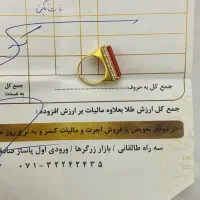 جمع کل به حروف:
جمع کل
به عدد:
جمع کل ارزش طلا بعلاوه مالیات بر ارزش افزوده:
در موقع تعویض یا فروش اجرت و مالیات کسر و به نرخ روز
سه راه طالقانی / بازار زرگرها / ورودی اول پاساژ
۰۷۱-۳۲۲۴۲۴۳۵